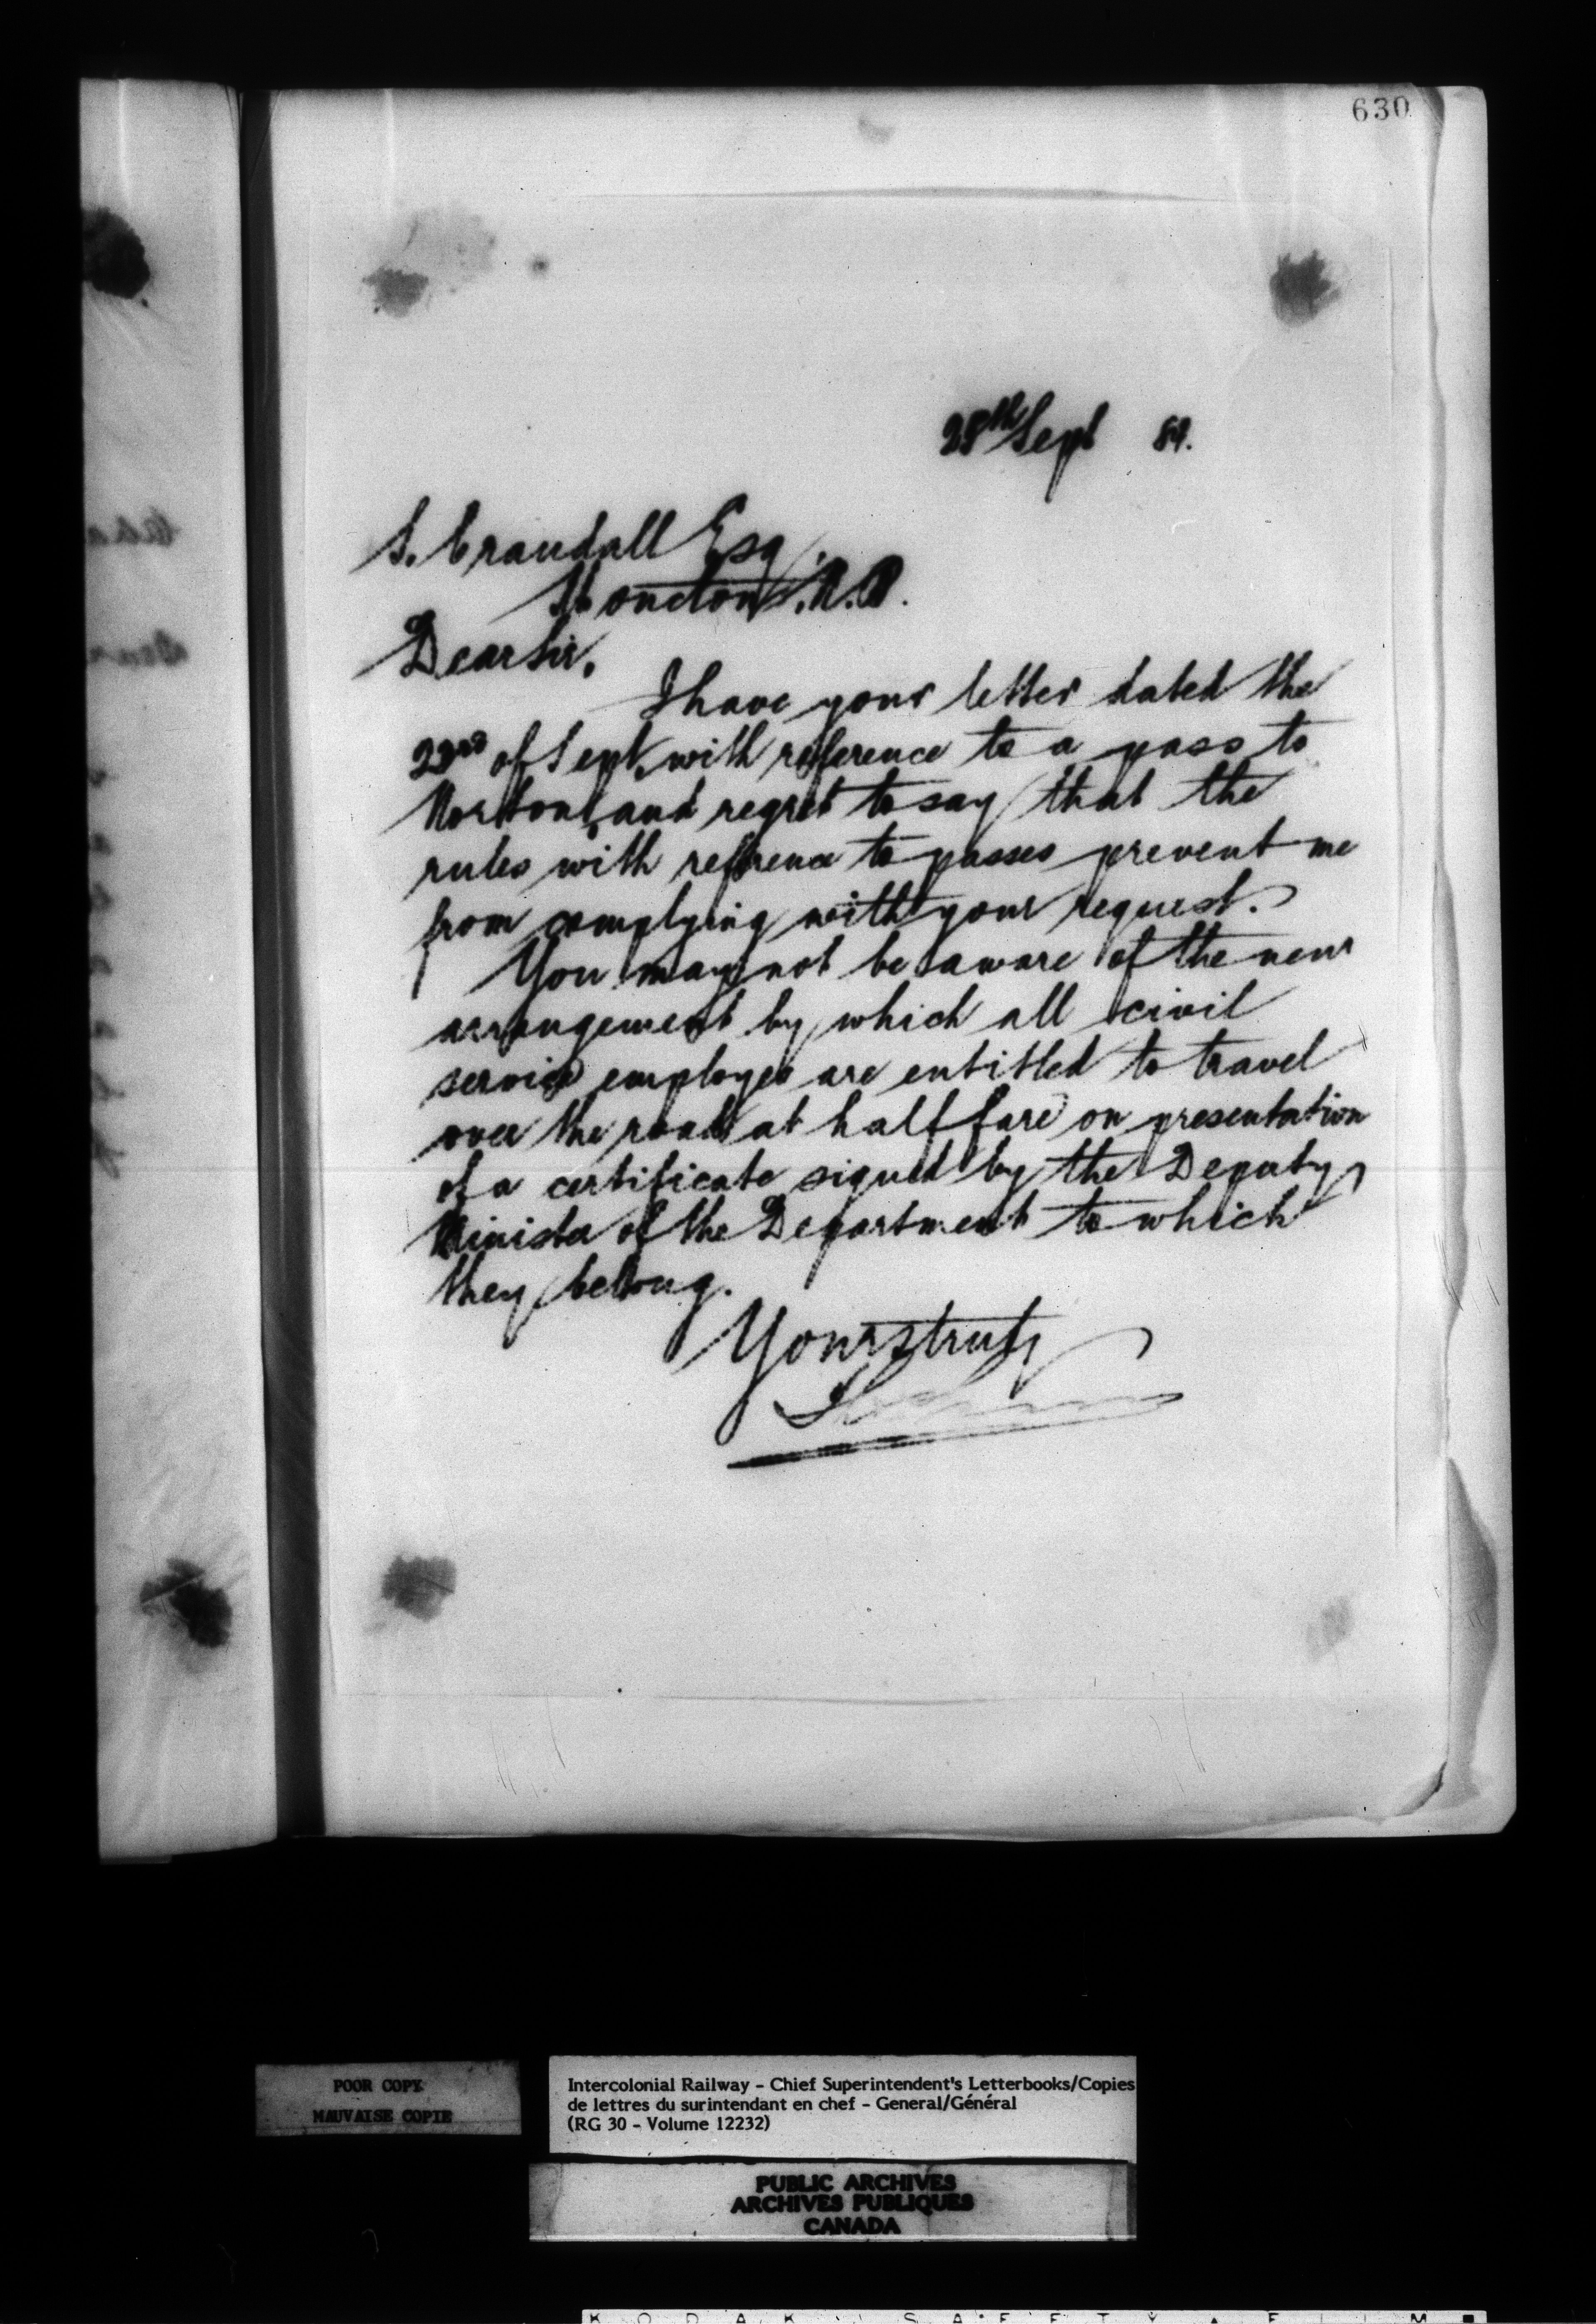 630
28th Sept 84.
S. Crandall Esq.
Moncton. N.B.
Dear Sir.
I have your letter dated the
22nd of Sept. with reference to a pass to
Norton, and regret to say that the
rules with refrence to passes prevent me
from complying with your request.
You may not be aware of the new
arrangement by which all civil
service employes are entitled to travel
over the road at half fare on presentation
of a certificate signed by the Deputy
Minister of the Department to which
they belong.
Yours truly
POOR COPY
MAUVAISE COPIE
Intercolonial Railway - Chief Superintendent's Letterbooks/Copies
de lettres du surintendant en chef - General/Général
(RG 30 - Volume 12232)
PUBLIC ARCHIVES
ARCHIVES PUBLIQUES
CANADA
KODAK SAFETY